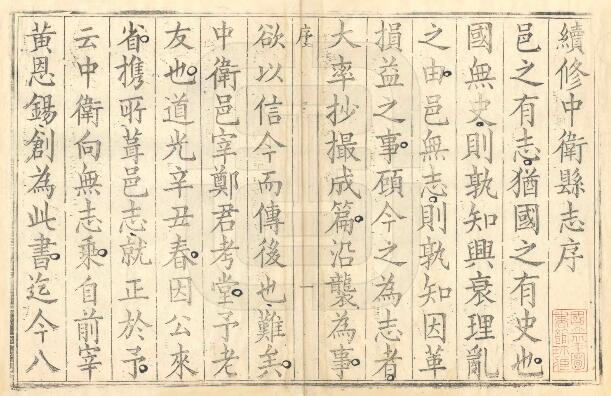 續修中衛縣志序
邑之有志猶國之有史也
國無史則孰知興衰理亂
之由邑無志則孰知因革
損益之事顧今之為志者
大率抄撮成篇沿襲為事
序
一
欲以信今而傳後也難矣
中衛邑宰鄭君考堂予老
友也道光辛丑春因公來
省攜所葺邑志就正於予
云中衛向無志乘自前宰
黃恩錫創為此書迄今八